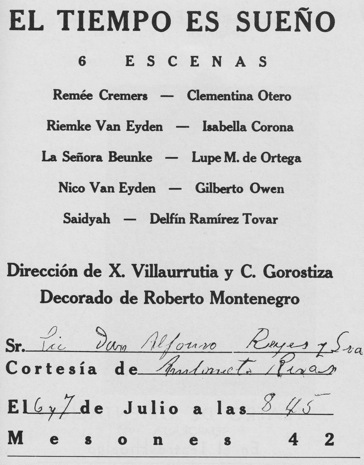 EL TIEMPO ES SUEÑO
6 ESCENAS
Remée Cremers — Clementina Otero
Riemke Van Eyden — Isabella Corona
La Señora Beunke — Lupe M. de Ortega
Nico Van Eyden — Gilberto Owen
Saidyah — Delfín Ramírez Tovar
Dirección de X. Villaurrutia y C. Gorostiza
Decorado de Roberto Montenegro
Sr. Lic Don Alfonso Reyes y Sra
Cortesía de Antonieta Rivas
El 6 y 7 de Julio a las 8 45
Mesones 42